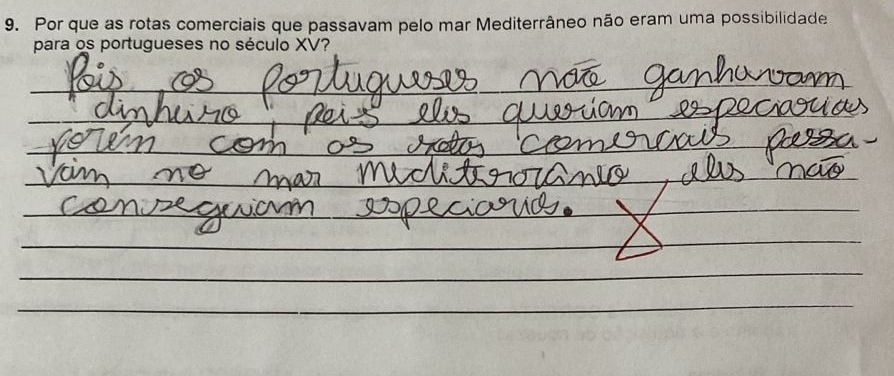 9. Por que as rotas comerciais que passavam pelo mar Mediterrâneo não eram uma possibilidade
para os portugueses no século XV?
Pois os Portugueses não ganhavam
dinheiro, pois eles queriam especiarias
porém com as rotas comerciais passa-
vam no mar meditororâneo, eles não
conseguiam especiarias.